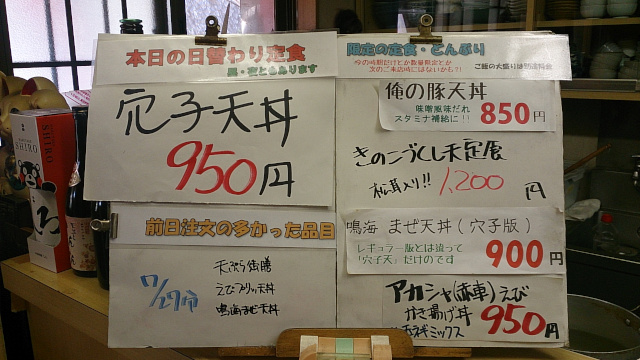 本日の日替わり定食
昼・夜ともあります
穴子天丼
950円
前日注文の多かった品目
天ぷら御膳
えびプリッ天丼
鳴海まぜ天丼
限定の定食・どんぶり
今の時期だけとか数量限定とか
次のご来店時にはないかも?!
ご飯の大盛りは別途料金
俺の豚天丼
味噌風味だれ
スタミナ補給に!!
850円
きのこづくし天定食
松茸入り!! 1,200 円
鳴海 まぜ天丼(穴子版)
レギュラー版とは違って
「穴子天」だけのです
900円
アカシャ(赤車)えび
かき揚げ丼
ネギミックス
950円
SHIRO